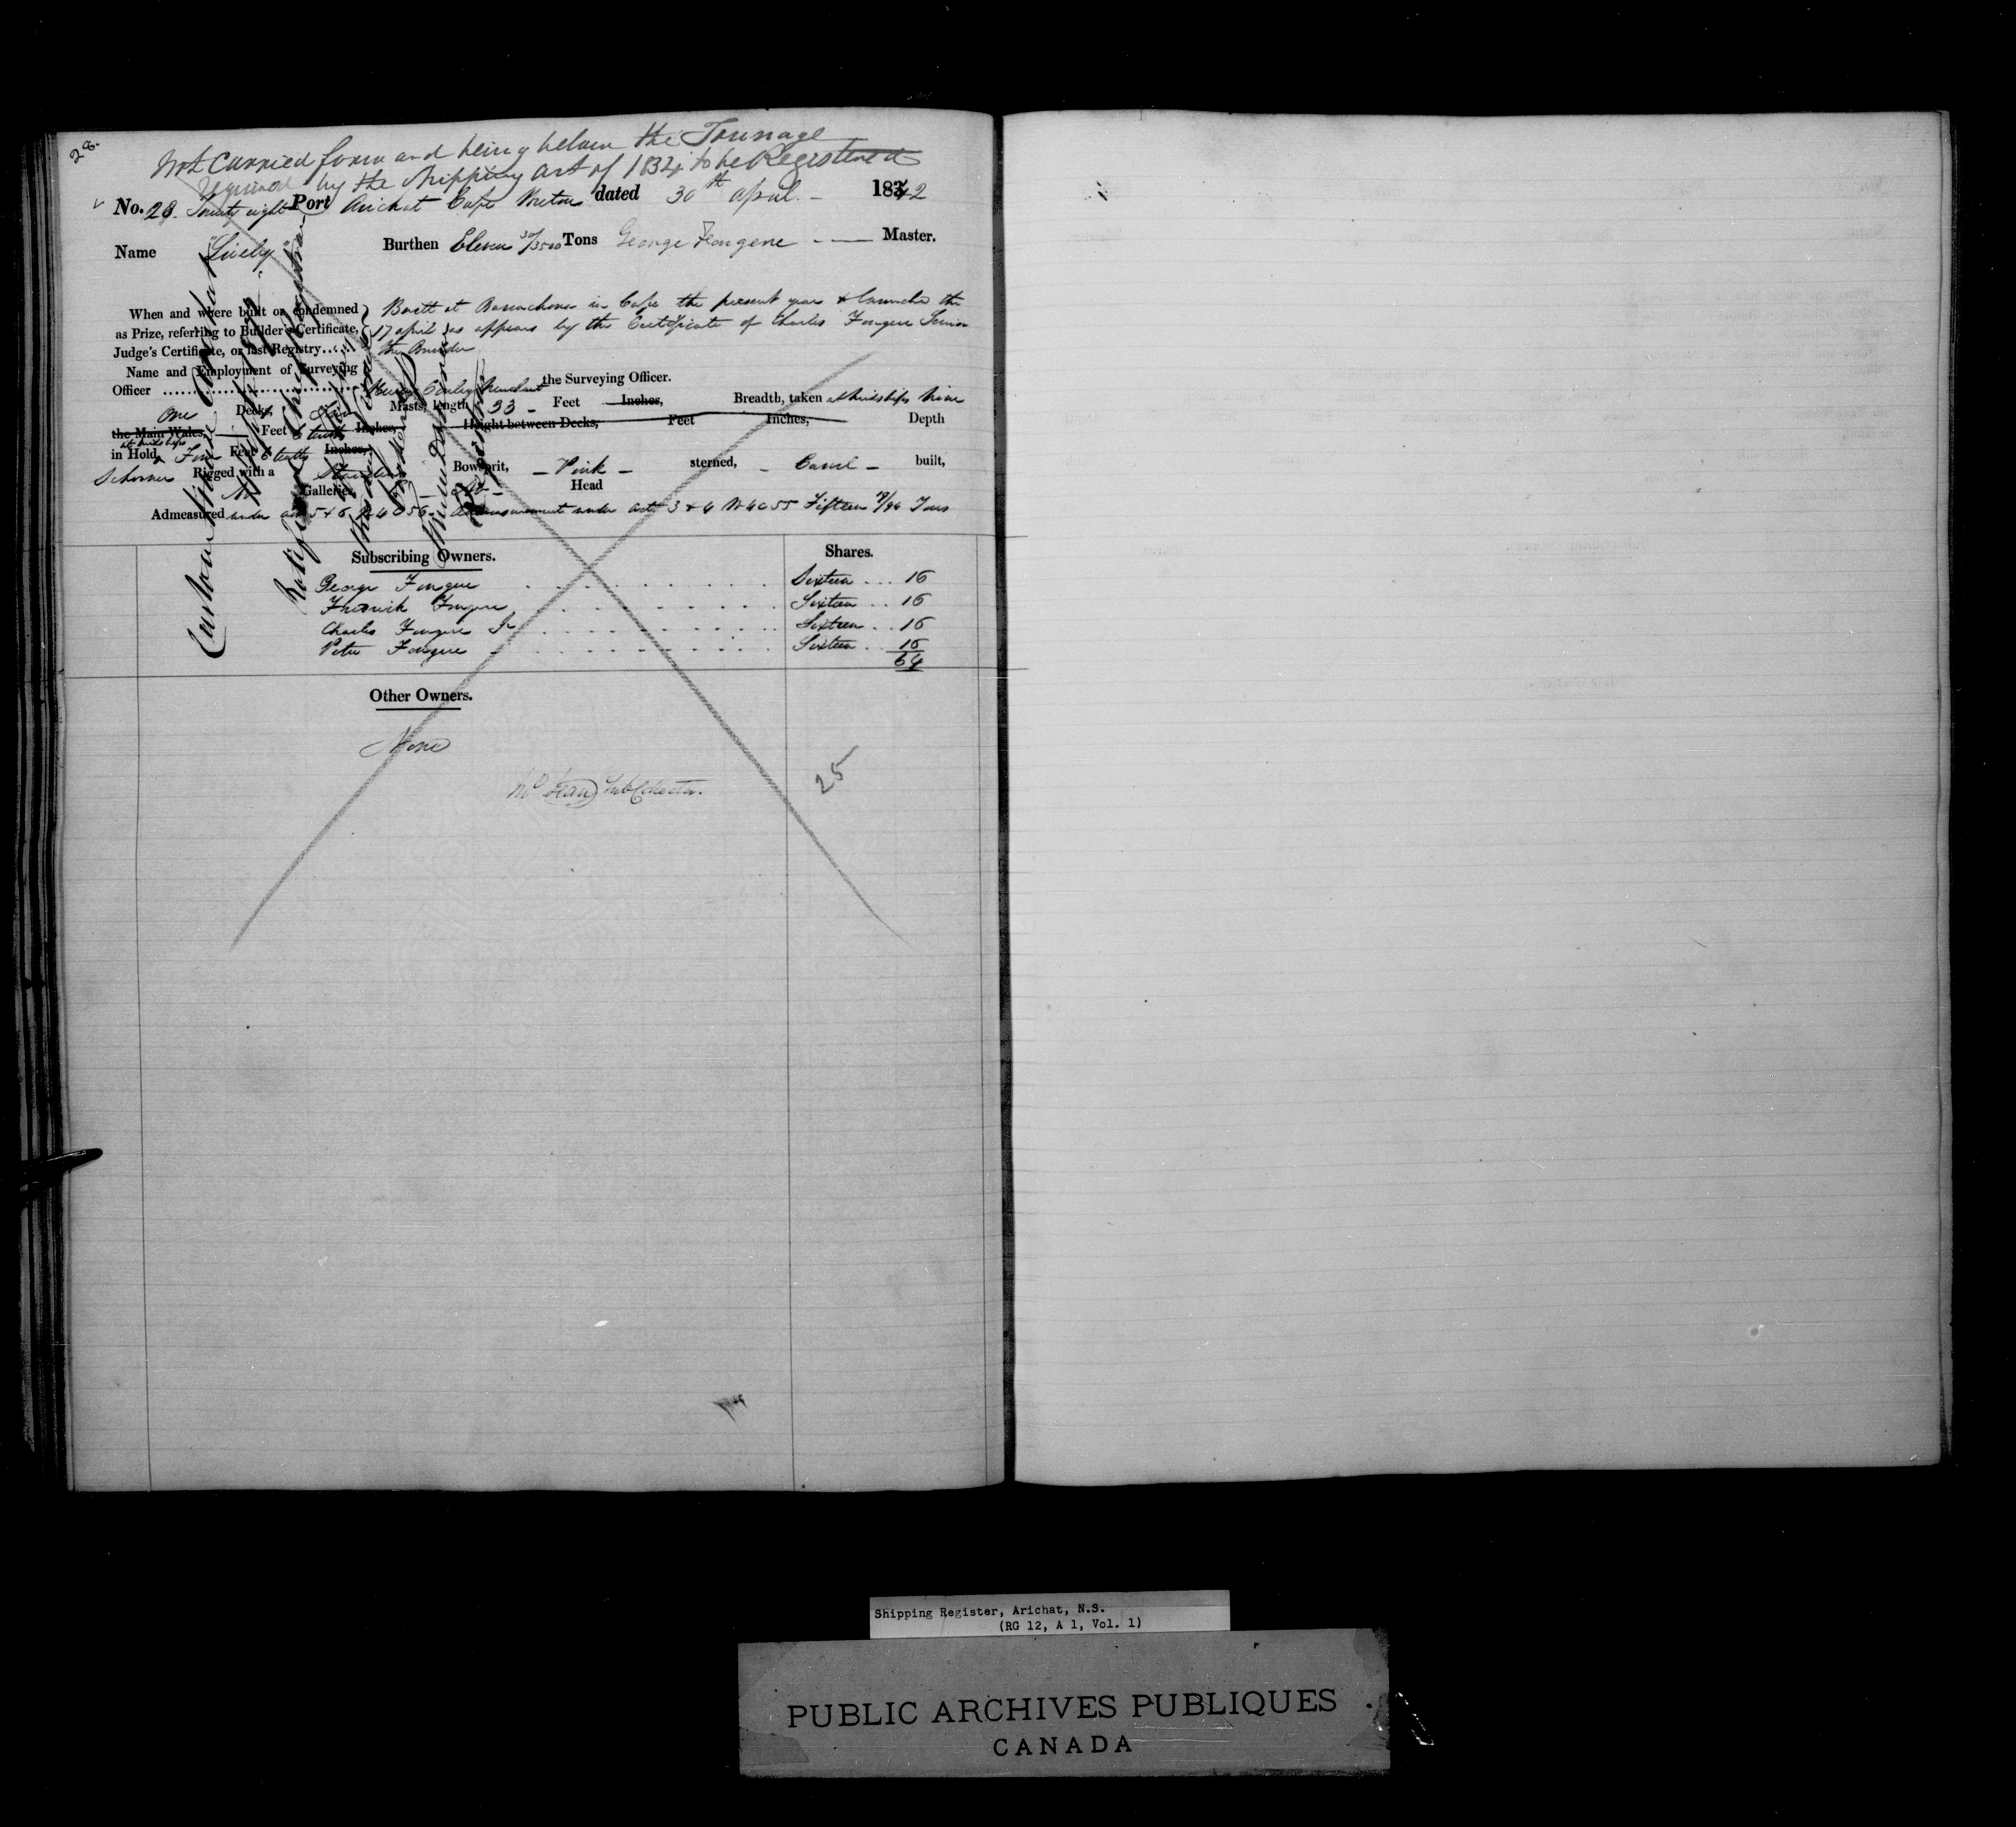 28.
Not Carried forw and being below the Tonnage
required by the Shipping Act of 1834 to be Registered
No. 28. Twenty eight Port Arichat Cape Breton dated 30th April - 1842
Name "Lively" Burthen Eleven 30/3500 Tons George Fougere Master.
When and where built or condemned Built at Barachois in Cape the present year & launched the
as Prize, referring to Builder's Certificate, 17 April as appears by the Certificate of Charles Fougere Senior
Judge's Certificate, or last Registry..... the Builder
Name and Employment of Surveying
Officer the Surveying Officer.
One Decks, Two Masts, length 33 - Feet Inches, Breadth, taken at Midships Nine
the Main Wales, Feet 6 tenths Inches, Height between Decks, Feet Inches, Depth
at Midships
in Hold Feet 6 tenths Inches,
Schooner Rigged with a Standing Bowsprit, - Pink - sterned, - Carvel - built,
No Galleries, Head
Admeasured under Act 5 & 6 W 4 C 56 - Admeasurement under Act 3 & 4 W 4 C 55 Fifteen 7/94 Tons
Custom House Arichat
Subscribing Owners. Shares.
George Fougere Sixteen ... 16
Frederick Fougere Sixteen .. 16
Charles Fougere Jr Sixteen .. 16
Peter Fougere Sixteen .. 16
64
Other Owners.
None
Sub Collector.
25
Shipping Register, Arichat, N.S.
(RG 12, A 1, Vol. 1)
PUBLIC ARCHIVES PUBLIQUES
CANADA